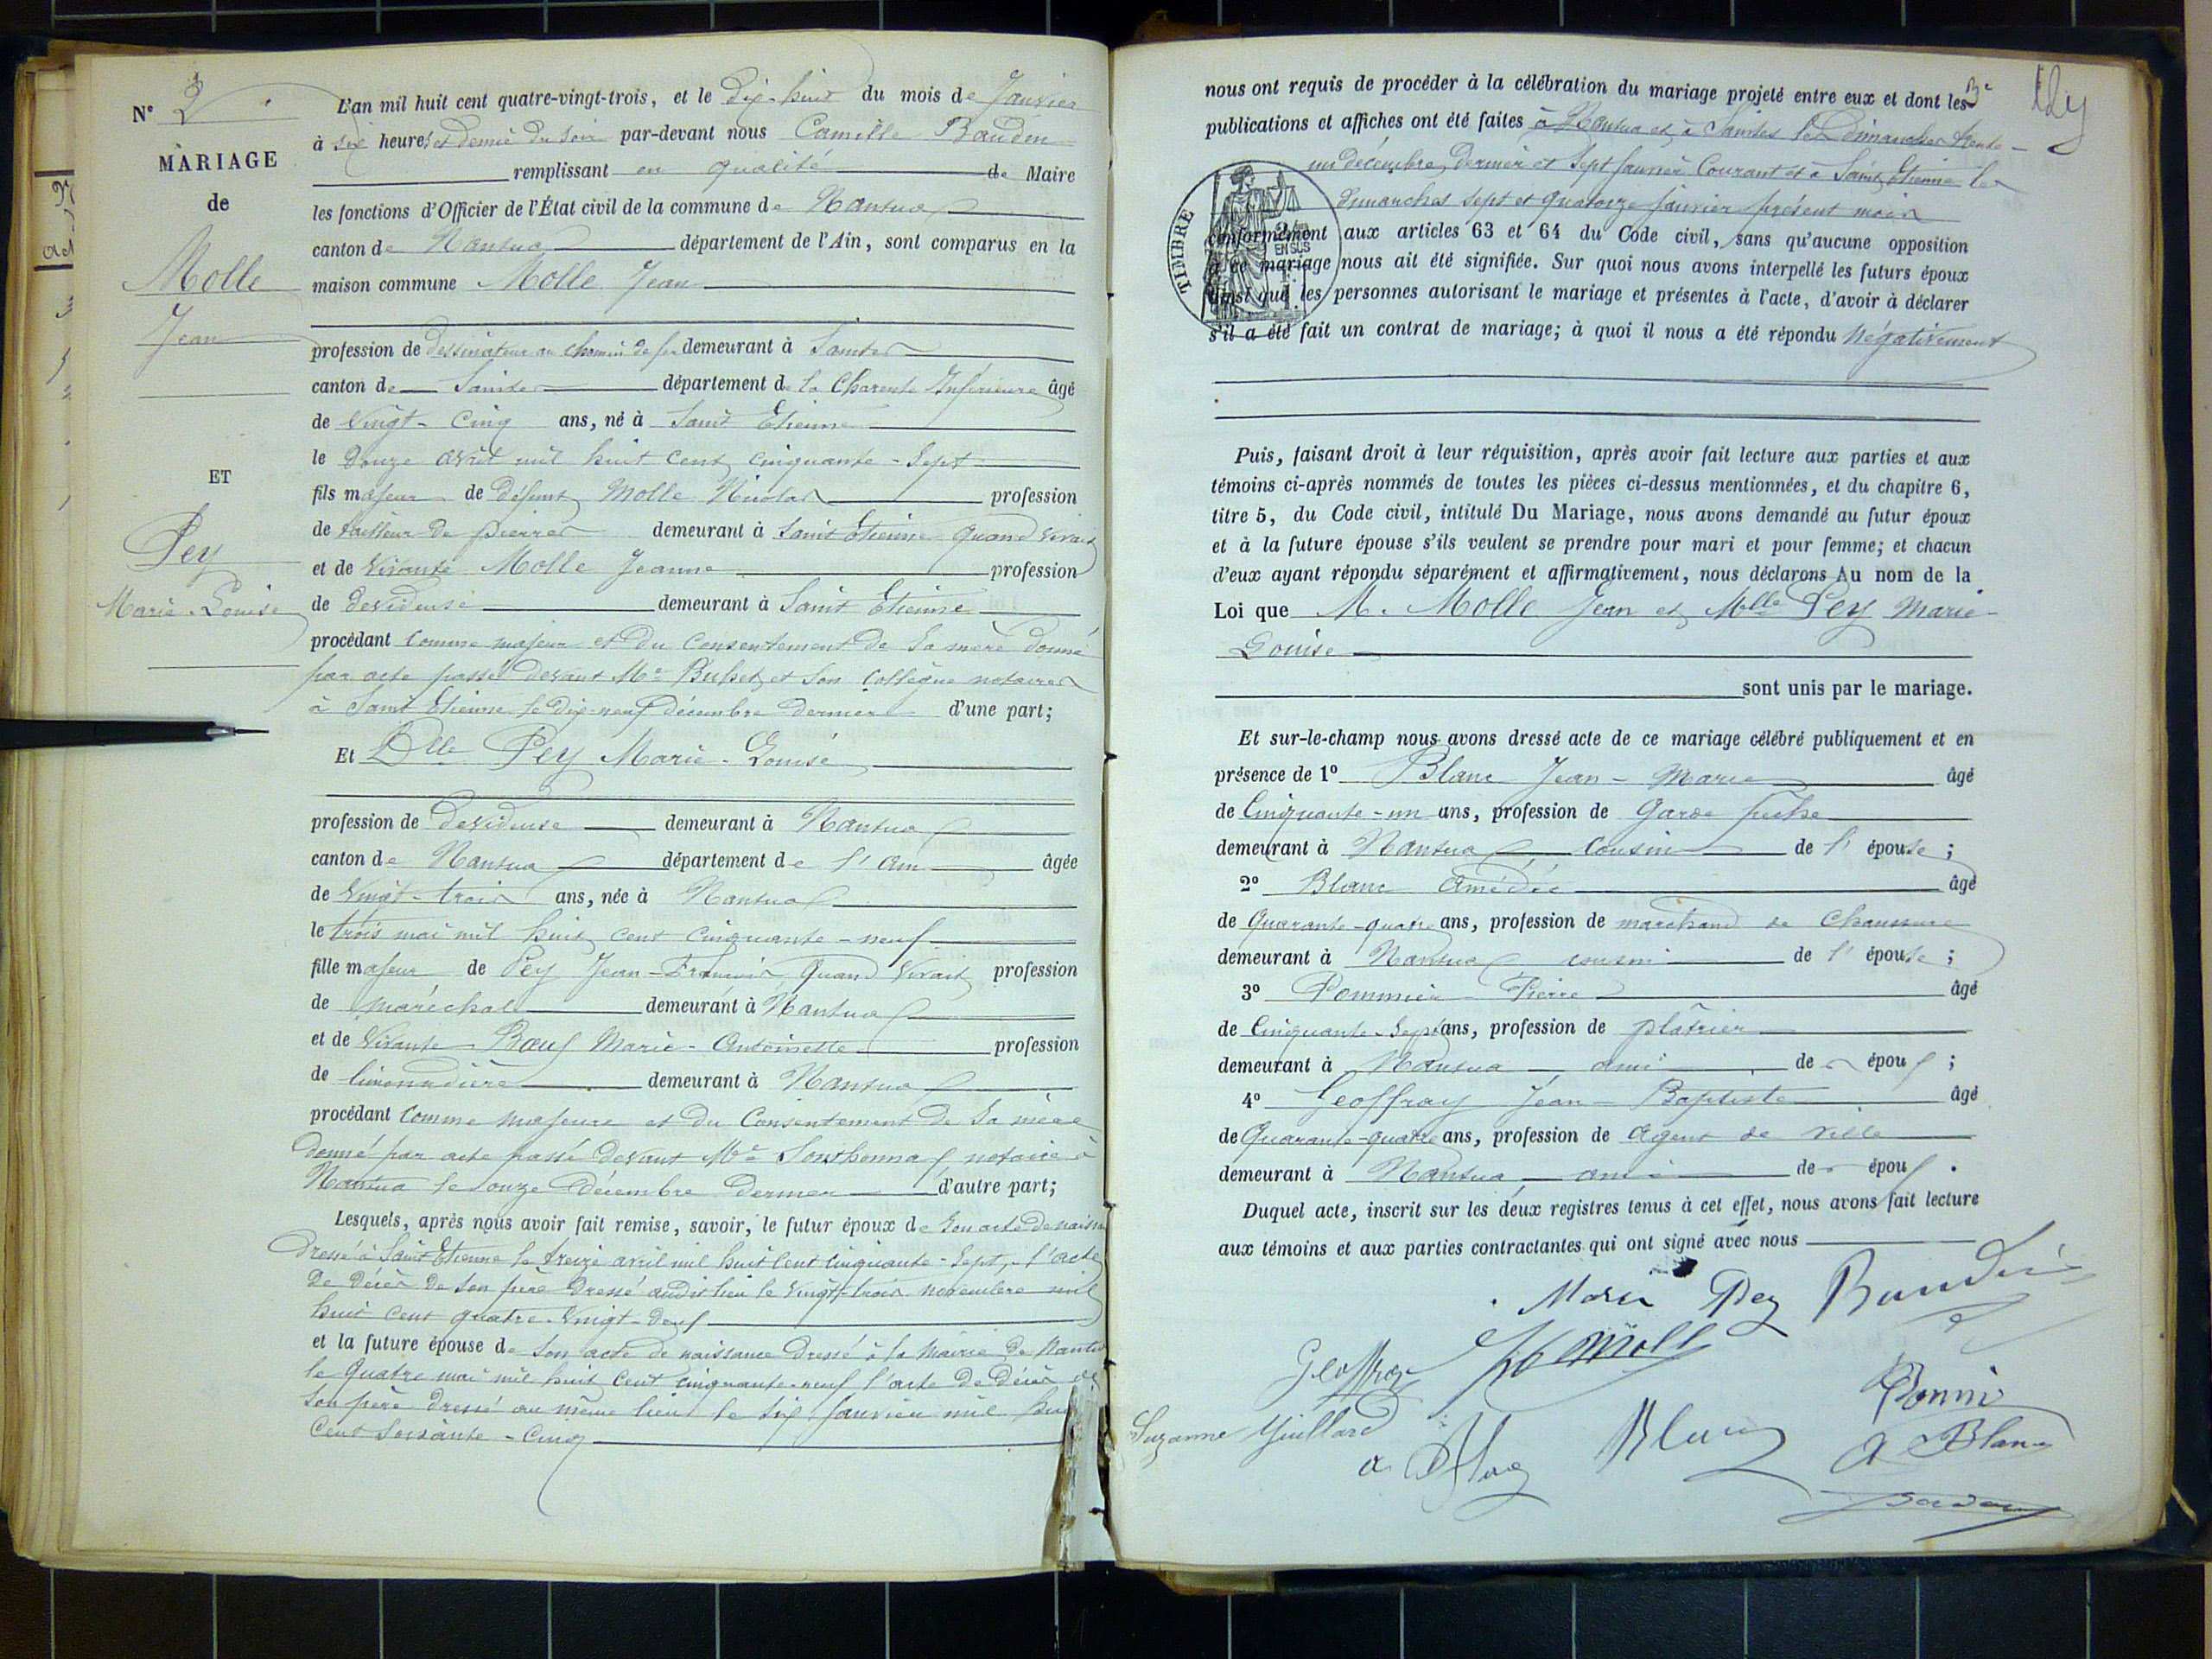 N° 2
MARIAGE
de
Molle
Jean
ET
Pey
Marie-Louise
L'an mil huit cent quatre-vingt-trois, et le dix-huit du mois de Janvier
à six heures et demie du soir par-devant nous Camille Baudin
remplissant en qualité de Maire
les fonctions d'Officier de l'État civil de la commune de Nantua
canton de Nantua département de l'Ain, sont comparus en la
maison commune Molle Jean
profession de dessinateur au chemin de fer demeurant à Saintes
canton de Saintes département de la Charente Inférieure âgé
de vingt-cinq ans, né à Saint Etienne
le douze avril mil huit cent cinquante-sept
fils majeur de défunt Molle Nicolas profession
de tailleur de pierres demeurant à Saint Etienne quand vivait
et de vivante Molle Jeanne profession
de devideuse demeurant à Saint Etienne
procédant comme majeur et du consentement de sa mère donné
par acte passé devant Me et son collègue notaires
à Saint Etienne le dix-neuf décembre dernier d'une part;
Et Dlle Pey Marie-Louise
profession de devideuse demeurant à Nantua
canton de Nantua département de l'Ain âgée
de vingt-trois ans, née à Nantua
le trois mai mil huit cent cinquante-neuf
fille majeur de Pey Jean-François quand vivait profession
de maréchal demeurant à Nantua
et de vivante Bœuf Marie-Antoinette profession
de limonadière demeurant à Nantua
procédant comme majeure et du consentement de sa mère
donné par acte passé devant Me Sonthonnaf notaire à
Nantua le onze décembre dernier d'autre part;
Lesquels, après nous avoir fait remise, savoir, le futur époux de son acte de naiss
dressé à Saint Etienne le treize avril mil huit cent cinquante-sept, l'acte
de décès de son père dressé audit lieu le vingt-trois novembre mil
huit cent quatre-vingt-deux
et la future épouse de son acte de naissance dressé à la Mairie de Nantua
le quatre mai mil huit cent cinquante-neuf l'acte de décès de
son père dressé au même lieu le six janvier mil huit
cent soixante-cinq
nous ont requis de procéder à la célébration du mariage projeté entre eux et dont les
publications et affiches ont été faites à Nantua et à Saintes les dimanches trente-
un décembre dernier et sept janvier courant et à Saint Etienne les
dimanches sept et quatorze janvier présent mois
TIMBRE
EN SUS
conformément aux articles 63 et 64 du Code civil, sans qu'aucune opposition
à ce mariage nous ait été signifiée. Sur quoi nous avons interpellé les futurs époux
ainsi que les personnes autorisant le mariage et présentes à l'acte, d'avoir à déclarer
s'il a été fait un contrat de mariage; à quoi il nous a été répondu négativement
Puis, faisant droit à leur réquisition, après avoir fait lecture aux parties et aux
témoins ci-après nommés de toutes les pièces ci-dessus mentionnées, et du chapitre 6,
titre 5, du Code civil, intitulé Du Mariage, nous avons demandé au futur époux
et à la future épouse s'ils veulent se prendre pour mari et pour femme; et chacun
d'eux ayant répondu séparément et affirmativement, nous déclarons Au nom de la
Loi que M. Molle Jean et Mlle Pey Marie-
Louise
sont unis par le mariage.
Et sur-le-champ nous avons dressé acte de ce mariage célébré publiquement et en
présence de 1° Blanc Jean-Marie âgé
de Cinquante-un ans, profession de Garde pêche
demeurant à Nantua cousin de l'épouse;
2° Blanc Amédée âgé
de Quarante-quatre ans, profession de marchand de chaussure
demeurant à Nantua cousin de l'épouse;
3° Pommier Pierre âgé
de Cinquante-sept ans, profession de plâtrier
demeurant à Nantua ami de s époux;
4° Geoffray Jean-Baptiste âgé
de Quarante-quatre ans, profession de agent de ville
demeurant à Nantua ami de s époux.
Duquel acte, inscrit sur les deux registres tenus à cet effet, nous avons fait lecture
aux témoins et aux parties contractantes qui ont signé avec nous
Marie Pey Baudin
Geoffray Molle
Suzanne Guillard Blanc A Blanc